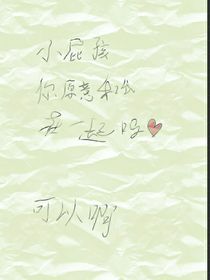 小屁孩
你愿意和我
在一起吗
可以啊